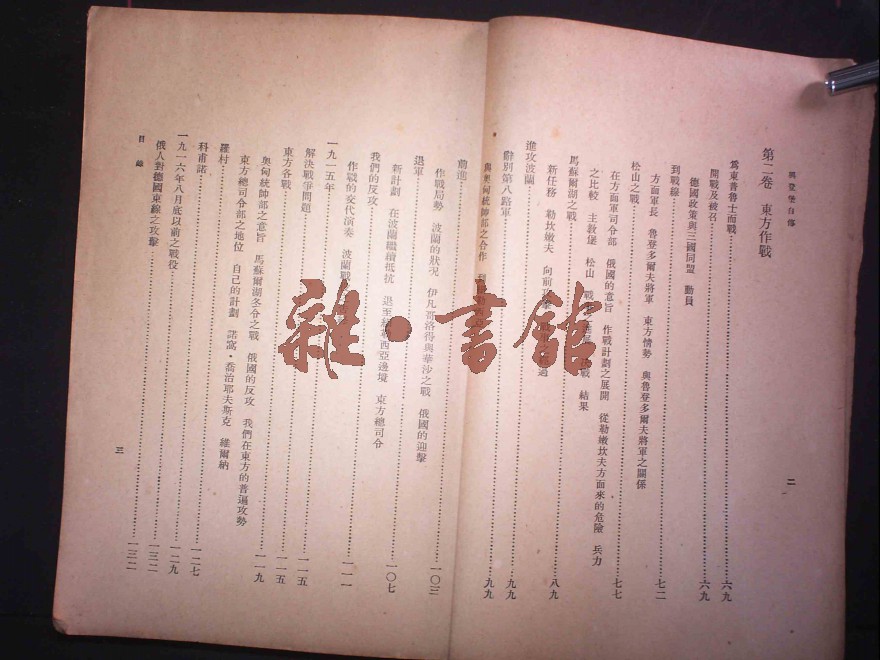 興登堡自傳
第二卷 東方作戰
爲東普魯士而戰……六九
開戰及被召……六九
德國政策與三國同盟 動員
到戰線……七二
方面軍長 魯登多爾夫將軍 東方情勢 與魯登多爾夫將軍之關係
松山之戰……七七
在方面軍司令部 俄國的意旨 作戰計劃之展開 從勒嫩坎夫方面來的危險 兵力
之比較 主敦堡 松山 戰 結果
馬蘇爾湖之戰……八九
新任務 勒坎嫩夫 向前 過
進攻波蘭……九九
辭別第八路軍
與奧匈統帥部之合作……九九
前進……一〇三
作戰局勢 波蘭的狀況 伊凡哥洛得與華沙之戰 俄國的迎擊
退軍……一〇七
新計劃 在波蘭繼續抵抗 退至 西亞邊境 東方總司令
我們的反攻……一一一
作戰的交代演奏 波蘭戰
一九一五年……一一五
解決戰爭問題……一一五
東方各戰……一一九
奧匈統帥部之意旨 馬蘇爾湖冬令之戰 俄國的反攻 我們在東方的普遍攻勢
東方總司令部之地位 自己的計劃 諾窩・喬治耶夫斯克 維爾納
羅村……一二七
科甫諾……一二九
一九一六年八月底以前之戰役……一三二
俄人對德國東線之攻擊……一三二
目錄
二
三
雜・書館